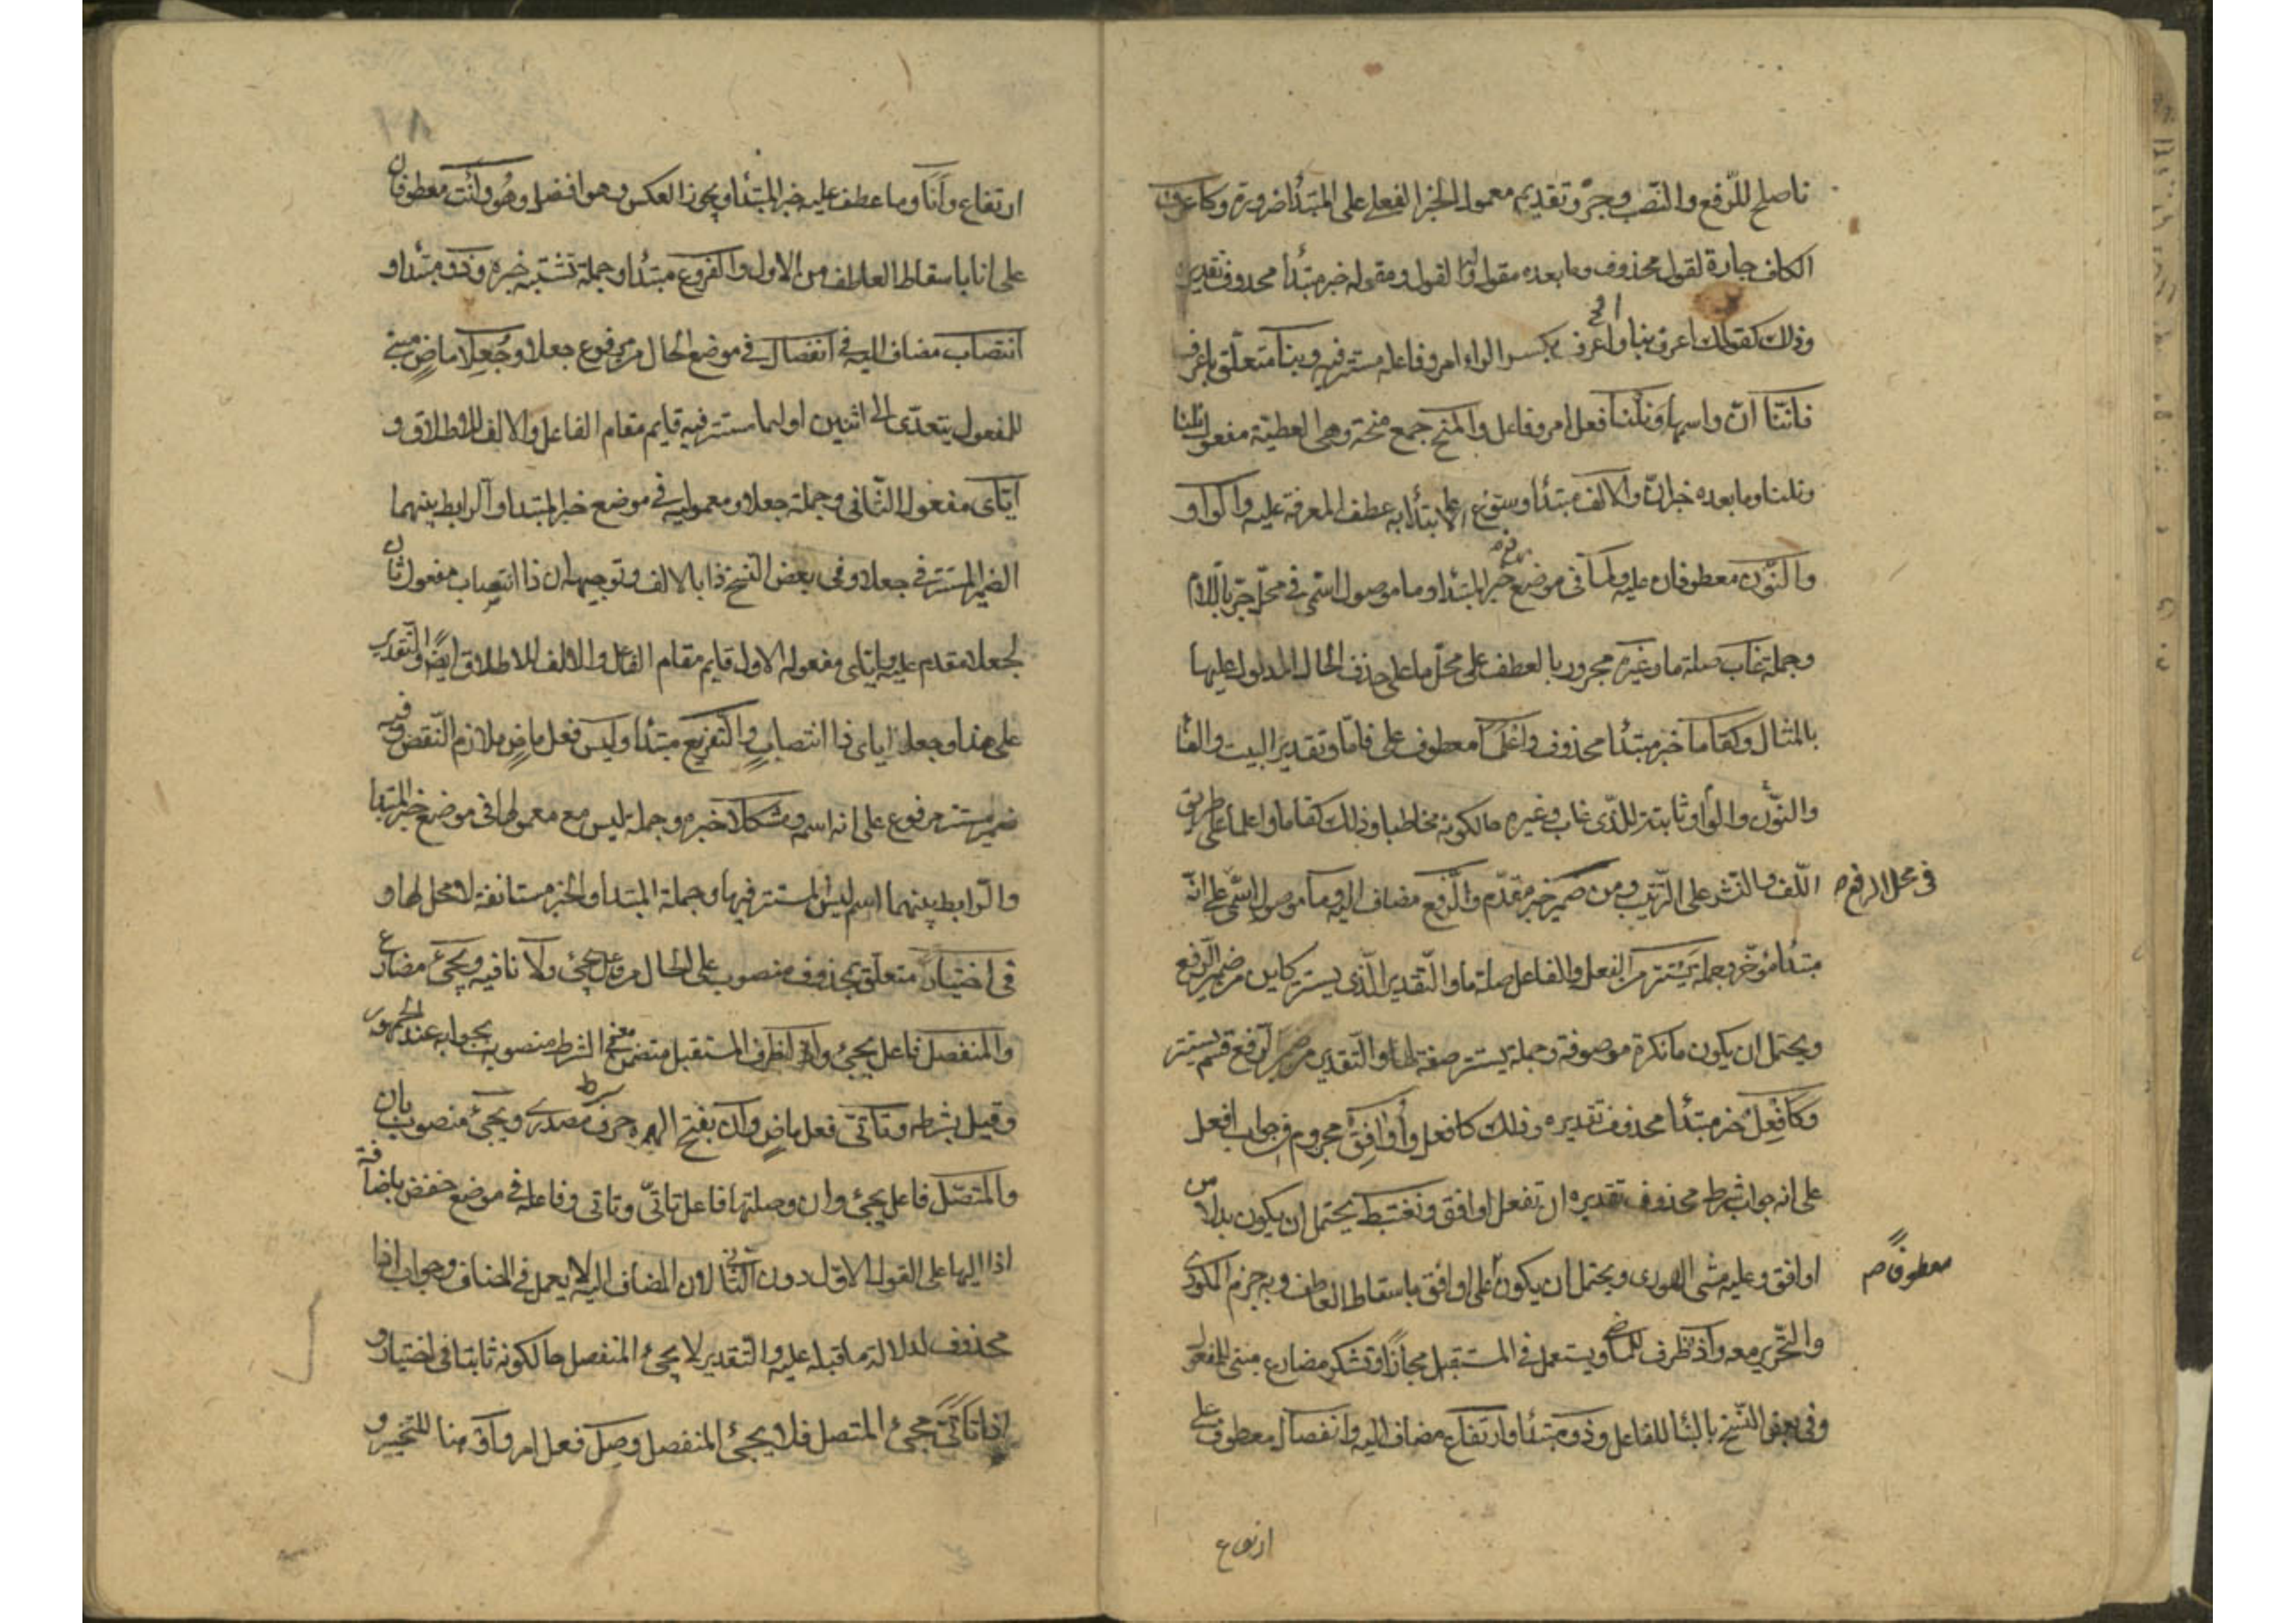 ناصلح للرفع والنصب وجر وتقديم معمول الخبر الفعلي على المبتدأ ضرورة وكاعرف
الكاف جارة لقول محذوف وما بعده مقول لذلك القول ومقوله خبر مبتدأ محذوف تقديره
وذلك كقولك اعرف بنا واعرف بكسر الراء امر وفاعله مستتر فيه وبنا متعلق باعرف
فاننا ان واسمها ونلنا فعل وفاعل والمنح جمع منحة وهي العطية مفعول نلنا
ونلنا وما بعده خبر ان والالف مبتدأ وسوغ الابتدأ به عطف المعرفة عليه والواو
والنون معطوفان عليه ولما في موضع رفع خبر المبتدأ وما موصول اسمي في محل جر باللام
وجملة غاب صلة ما وغيره مجرور بالعطف على محل ما على حذف الحال المدلول عليها
بالمثال وكقاما خبر مبتدأ محذوف واعلما معطوف على قاما وتقدير البيت والف
والنون والواو ثابتة للذي غاب وغيره حالكونه مخاطبا وذلك كقاما واعلما على طريق
اللف والنشر على الترتيب ومن ضمير خبر مقدم والرفع مضاف اليه وما موصول اسمي على انه
في محل الرفع
مبتدأ مؤخر وجملة يستتر من الفعل والفاعل صلة ما والتقدير الذي يستتر كاين من ضمير الرفع
ويحتمل ان يكون ما نكرة موصوفة وجملة يستتر صفة لها والتقدير من ضمير الرفع قسم يستتر
وكافعل خبر مبتدأ محذوف تقديره وذلك كافعل واوافق مجزوم في جواب افعل
على انه جواب شرط محذوف تقديره ان تفعل اوافق ونغتبط يحتمل ان يكون بدلا من
اوافق وعليه مشى الهوري ويحتمل ان يكون على اوافق باسقاط العاطف وبه جزم المكودي
معطوفا صح
والتحرير معه واذ ظرف للماضي ويستعمل في المستقبل مجازا وتشكر مضارع مبني للمفعول
وفي بعض النسخ بالبنا للفاعل وذو مبتدأ وارتفاع مضاف اليه وانفصال معطوف على
ارتفاع
ارتفاع وانا وما عطف عليه خبر المبتدأ ويجوز العكس وهو افضل وهو وانت معطوفان
على انا باسقاط العاطف من الاول والفروع مبتدأ وجملة تشتبه خبره وذو مبتدأ و
انتصاب مضاف اليه في انفصال في موضع الحال من مرفوع جعلا وجعلا ماض مبني
للمفعول يتعدى الى اثنين اولهما مستتر فيه قايم مقام الفاعل والالف للاطلاق و
اياي مفعوله الثاني وجملة جعلا ومعموليه في موضع خبر المبتدا والرابط بينهما
الضمير المستتر في جعلا وفي بعض النسخ ذا بالالف وتوجيهه ان ذا انتصاب مفعول ثان
لجعلا مقدم عليه واياي مفعوله الاول قايم مقام الفاعل والالف للاطلاق ايضا والتقدير
على هذا وجعل اياي ذا انتصاب والتفريع مبتدأ وليس فعل ماض ملازم النقض وفيه
ضمير مستتر مرفوع على انه اسمه ومشكلا خبره وجملة ليس مع معموليها في موضع خبر المبتدا
والرابط بينهما اسم ليس المستتر فيها وجملة المبتدا والخبر مستانفة لا محل لها و
في اختيار متعلق بمحذوف منصوب على الحال من فاعل يجئ ولا نافيه ويجئ مضارع
والمنفصل فاعل يجئ واذا ظرف المستقبل متضمن معنى الشرط منصوب بجوابه عند الجمهور
وقيل بشرطه وتاتى فعل ماض وان بفتح الهمزه حرف مصدري ويجئ منصوب بان
والمتصل فاعل يجئ وان وصلتها فاعل تاتى وتاتى وفاعله في موضع خفض باضافة
اذا اليها على القول الاول دون الثاني لان المضاف اليه لا يعمل في المضاف وجواب اذا
محذوف لدلالة ما قبله عليه والتقدير لا يجئ المنفصل حالكونه ثابتا في اختيار و
اذا تاتى مجئ المتصل فلا يجئ المنفصل وصل فعل امر واو هنا للتخيير و